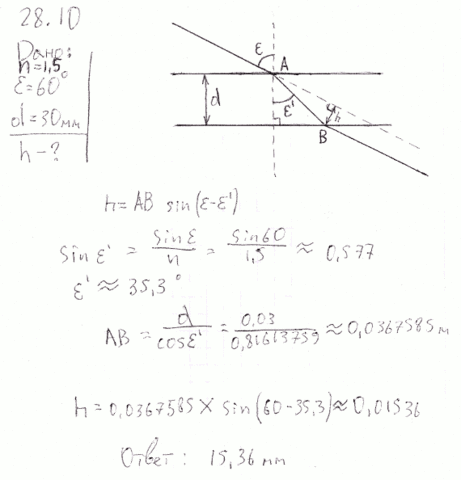 28.10
Дано:
n=1,5
ε=60°
d=30мм
h-?
ε
A
d
ε'
h
B
h=AB sin(ε-ε')
sin ε' = sinε/n = sin60/1,5 ≈ 0,577
ε' ≈ 35,3°
AB = d/cosε' = 0,03/0,81613759 ≈ 0,0367585м
h=0,0367585 × sin(60-35,3)≈0,01536
Ответ: 15,36 мм